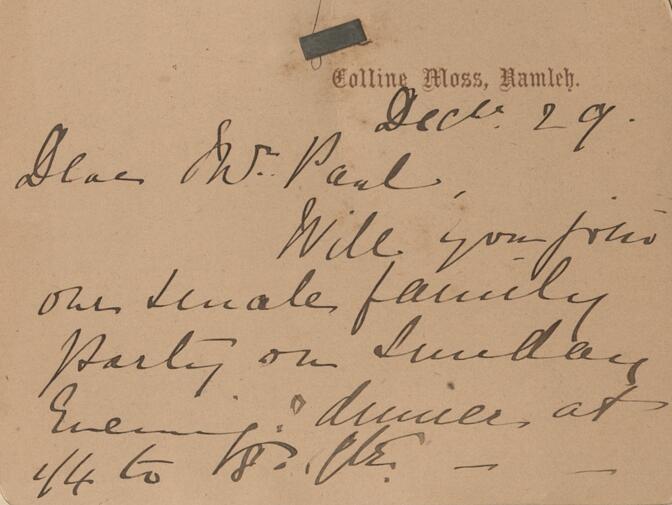 Colline Moss, Ramleh.
Decr. 29.
Dear Mr. Paul,
Will you join
our small family
party on Sunday
Evening? dinner at
1/4 to 8.